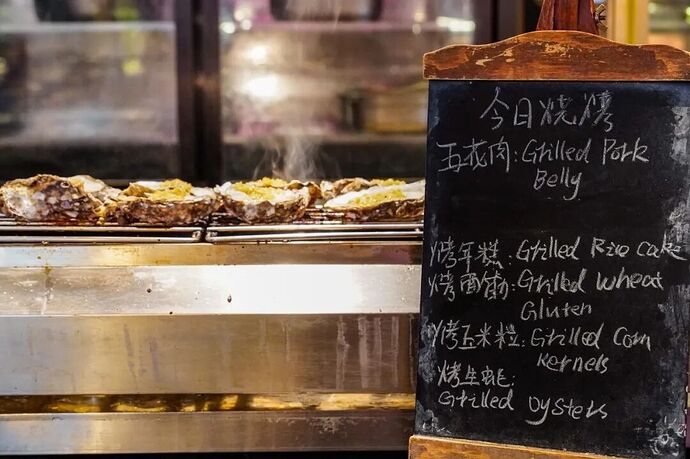 今日烧烤
五花肉: Grilled Pork
Belly
烤年糕: Grilled Rice Cake
烤面筋: Grilled Wheat
Gluten
烤玉米粒: Grilled Corn
Kernels
烤生蚝:
Grilled Oysters